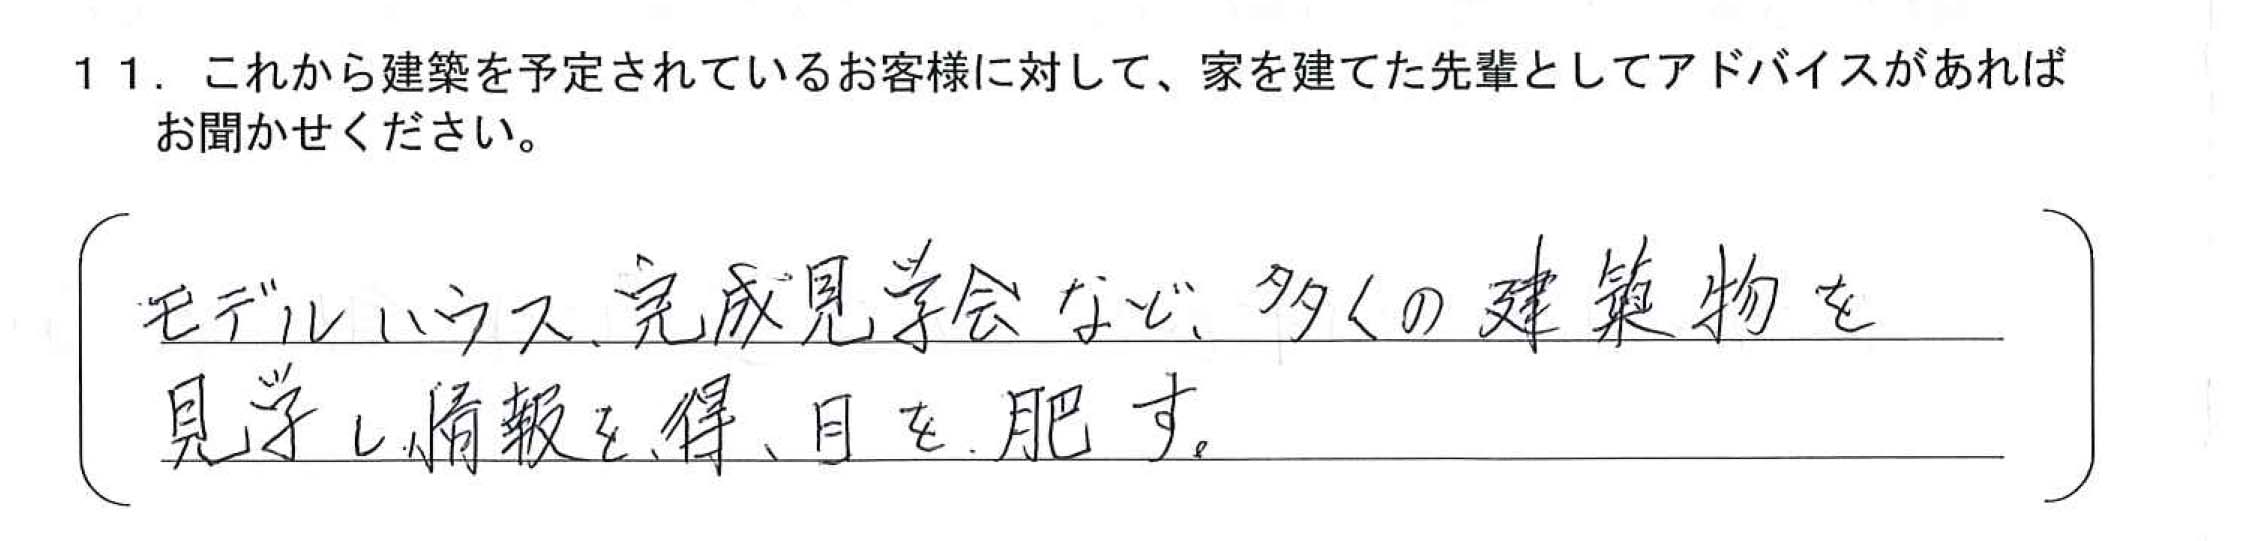 11．これから建築を予定されているお客様に対して、家を建てた先輩としてアドバイスがあれば
お聞かせください。
モデルハウス、完成見学会など、多くの建築物を
見学し、情報を得、目を肥す。